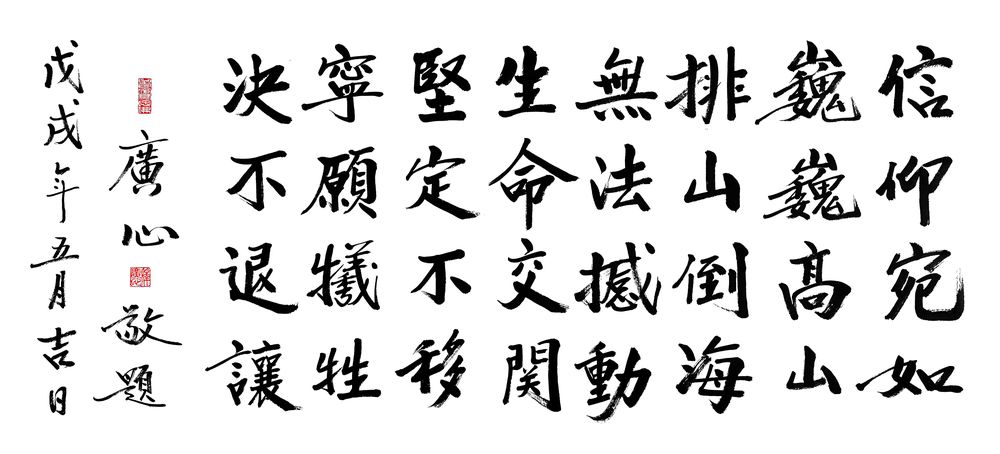 信仰宛如
巍巍高山
排山倒海
無法撼動
生命交関
堅定不移
寧願犧牲
決不退讓
廣心敬題
戊戌年五月吉日